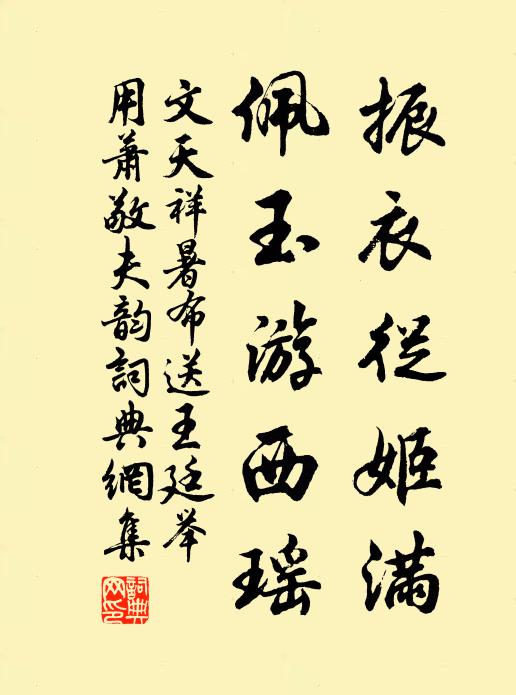 振衣從姬滿
佩玉游西瑶
文天祥暑布送王廷举
用萧敬夫韵詞典網集
詞典網印